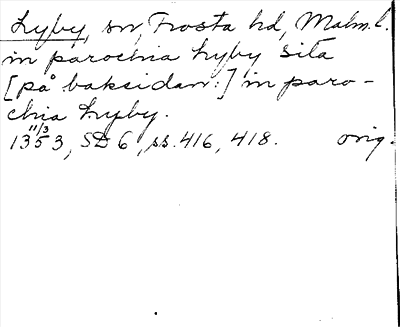 Lyby, sn, Frosta hd, Malm. l.
in parochia Lyby sita
[på baksidan:] in paro-
chia Lyby.
11/3
1353, SD 6, ss. 416, 418. orig.